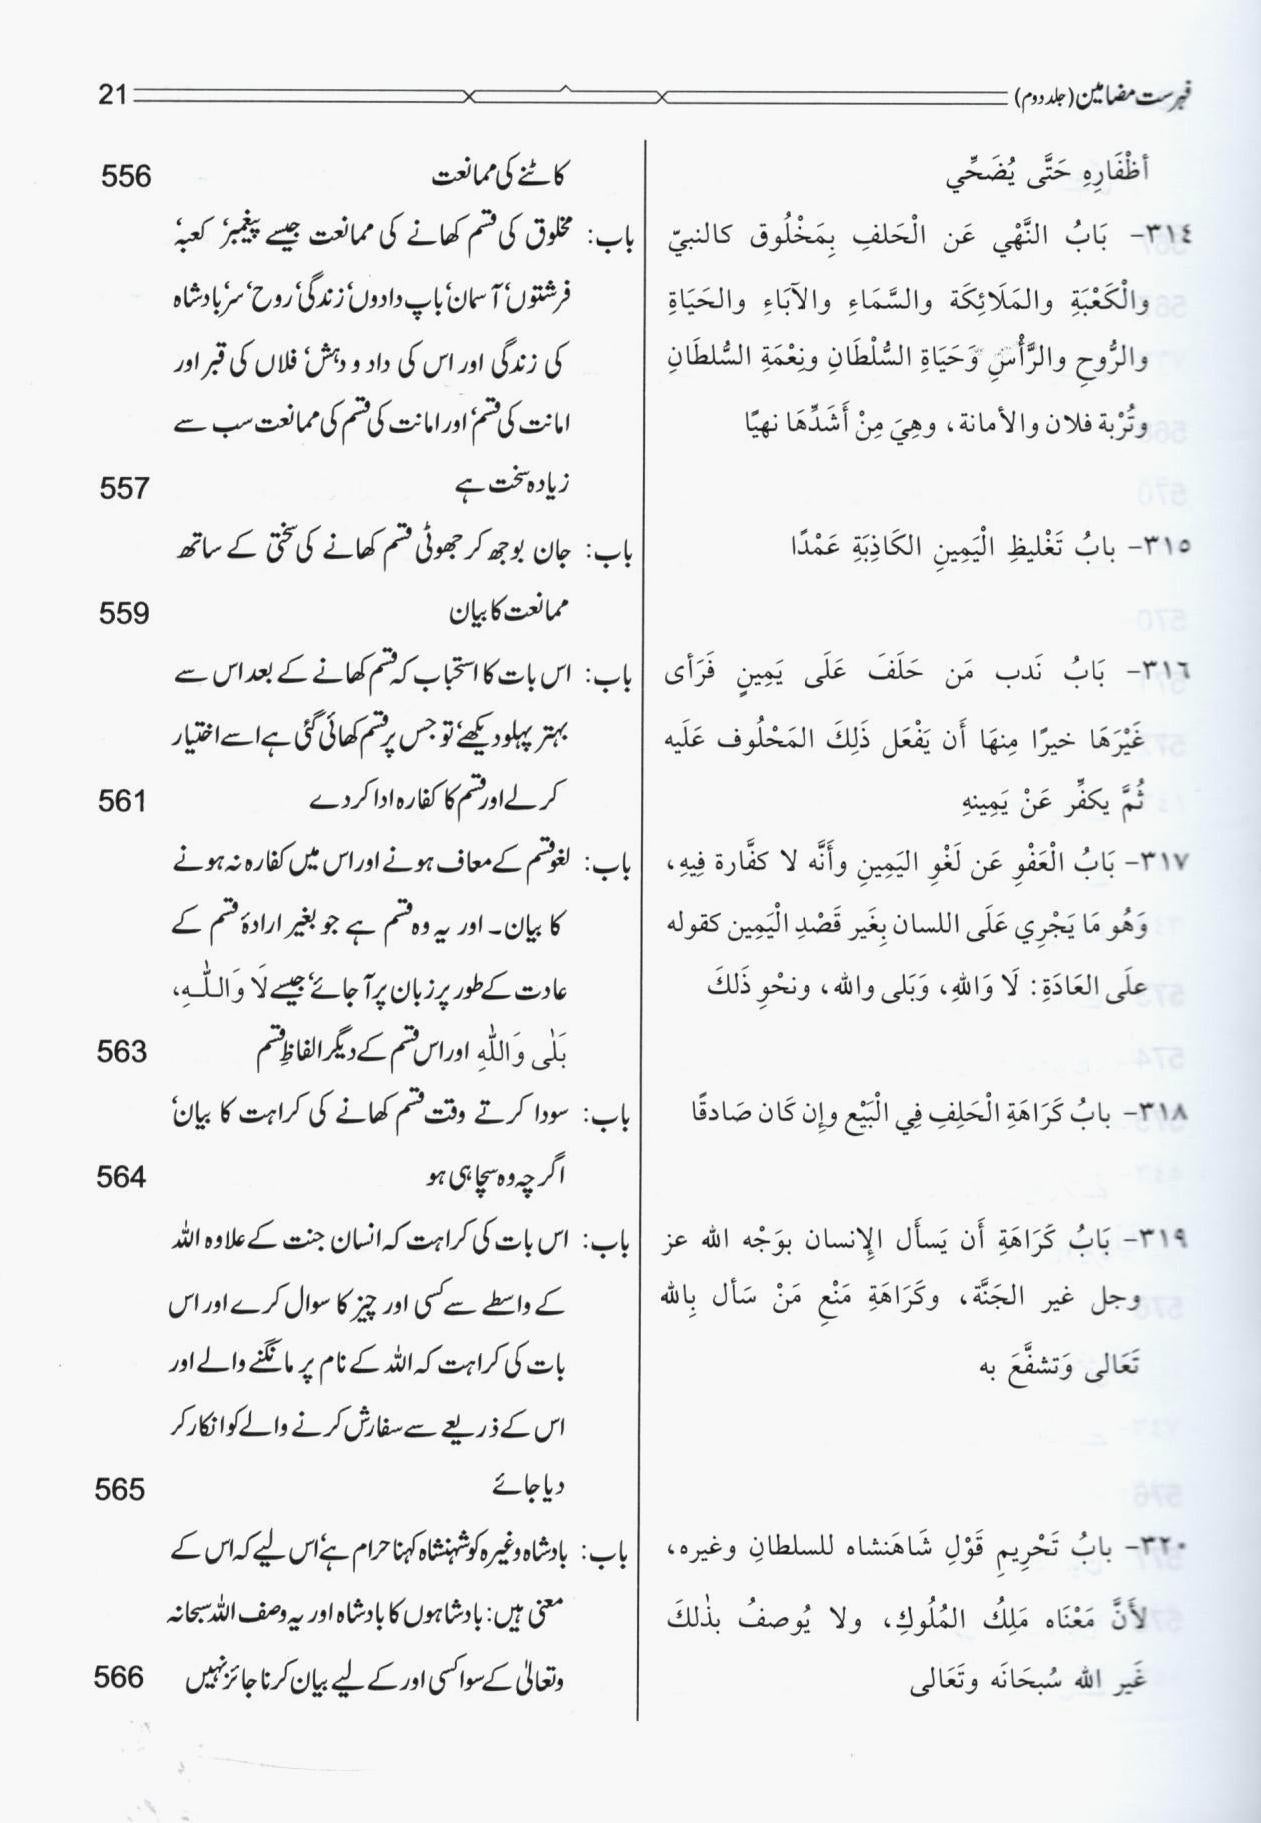 فہرست مضامین (جلد دوم) 21
أظْفَارِهِ حَتَّى يُضَحِّي
٣١٤- بَابُ النَّهْي عَن الْحَلفِ بِمَخْلُوق كالنبيّ
والْكَعْبَةِ والمَلَائِكَة والسَّمَاءِ والآبَاءِ والحَيَاةِ
والرُّوحِ والرَّأْسِ وَحَيَاةِ السُّلْطَانِ ونِعْمَةِ السُّلطَانِ
وتُرْبة فلان والأمانة، وهِيَ مِنْ أَشَدِّهَا نهيًا
٣١٥- بابُ تَغْليظِ الْيَمِينِ الكَاذِبَةِ عَمْدًا
٣١٦- بَابُ نَدب مَن حَلَفَ عَلَى يَمِينٍ فَرَأى
غَيْرَهَا خيرًا مِنهَا أَن يَفْعَل ذَلِكَ المَحْلُوف عَلَيه
ثُمَّ يكفِّر عَنْ يَمِينهِ
٣١٧- بَابُ الْعَفْوِ عَن لَغْوِ اليَمِينِ وأَنَّه لا كفَّارة فِيهِ،
وَهُو مَا يَجْرِي عَلَى اللسان بِغَير قَصْدِ الْيَمِين كقوله
علَى العَادَةِ: لَا وَاللهِ، وَبَلى والله، ونحْوِ ذَلكَ
٣١٨- بابُ كَرَاهَةِ الْحَلِفِ فِي الْبَيْع وإن كَان صَادقًا
٣١٩- بَابُ كَرَاهَةِ أَن يَسأَل الإنسان بوَجْه الله عز
وجل غير الجَنَّة، وكَرَاهَةِ مَنْعِ مَنْ سَأل بِالله
تَعَالى وَتشفَّعَ به
٣٢٠- بابُ تَحْرِيمِ قَوْلِ شَاهَنشاه للسلطانِ وغيره،
لأَنَّ مَعْنَاه مَلِكُ المُلُوكِ، ولا يُوصفُ بذٰلكَ
غَير الله سُبحَانَه وتَعَالى
کاٹنے کی ممانعت 556
باب: مخلوق کی قسم کھانے کی ممانعت جیسے پیغمبر، کعبہ،
فرشتوں، آسمان، باپ دادوں، زندگی، روح، سر، بادشاہ
کی زندگی اور اس کی داد و دہش، فلاں کی قبر اور
امانت کی قسم، اور امانت کی قسم کی ممانعت سب سے
زیادہ سخت ہے 557
باب: جان بوجھ کر جھوٹی قسم کھانے کی سختی کے ساتھ
ممانعت کا بیان 559
باب: اس بات کا استحباب کہ قسم کھانے کے بعد اس سے
بہتر پہلو دیکھے، تو جس پر قسم کھائی گئی ہے اسے اختیار
کر لے اور قسم کا کفارہ ادا کر دے 561
باب: لغو قسم کے معاف ہونے اور اس میں کفارہ نہ ہونے
کا بیان۔ اور یہ وہ قسم ہے جو بغیر ارادۂ قسم کے
عادت کے طور پر زبان پر آ جائے، جیسے لَا وَاللّٰہِ،
بَلٰی وَاللّٰہِ اور اس قسم کے دیگر الفاظِ قسم 563
باب: سودا کرتے وقت قسم کھانے کی کراہت کا بیان،
اگرچہ وہ سچا ہی ہو 564
باب: اس بات کی کراہت کہ انسان جنت کے علاوہ اللہ
کے واسطے سے کسی اور چیز کا سوال کرے اور اس
بات کی کراہت کہ اللہ کے نام پر مانگنے والے اور
اس کے ذریعے سے سفارش کرنے والے کو انکار کر
دیا جائے 565
باب: بادشاہ وغیرہ کو شہنشاہ کہنا حرام ہے، اس لیے کہ اس کے
معنی ہیں: بادشاہوں کا بادشاہ اور یہ وصف اللہ سبحانہ
وتعالیٰ کے سوا کسی اور کے لیے بیان کرنا جائز نہیں 566